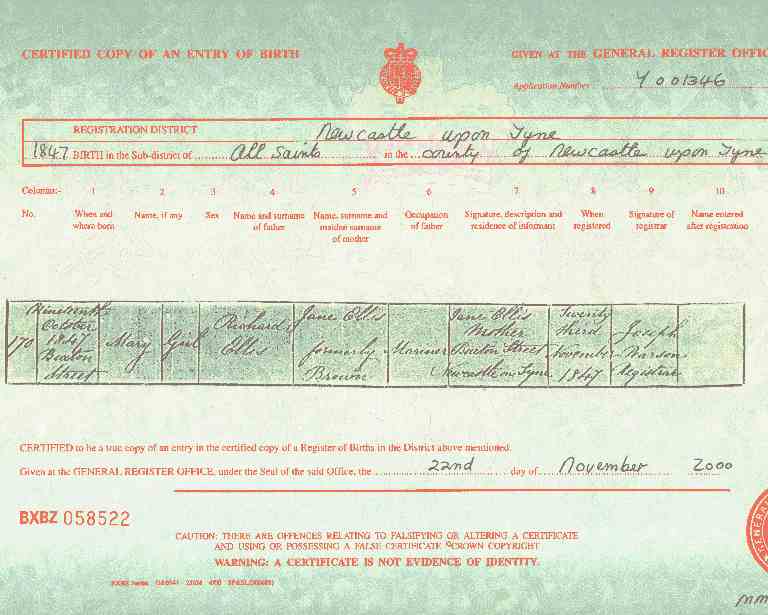 CERTIFIED COPY OF AN ENTRY OF BIRTH
GIVEN AT THE GENERAL REGISTER OFFIC
Application Number Y 001346
REGISTRATION DISTRICT Newcastle upon Tyne
1847 BIRTH in the Sub-district of All Saints in the county of Newcastle upon Tyne
Columns:- 1 2 3 4 5 6 7 8 9 10
No. When and where born Name, if any Sex Name and surname of father Name, surname and maiden surname of mother Occupation of father Signature, description and residence of informant When registered Signature of registrar Name entered after registration
170 Nineteenth October 1847 Buxton Street Mary Girl Richard Ellis Jane Ellis formerly Brown Mariner Jane Ellis Mother Buxton Street Newcastle on Tyne Twenty third November 1847 Joseph Registrar
CERTIFIED to be a true copy of an entry in the certified copy of a Register of Births in the District above mentioned.
Given at the GENERAL REGISTER OFFICE, under the Seal of the said Office, the 22nd day of November 2000
BXBZ 058522
CAUTION: THERE ARE OFFENCES RELATING TO FALSIFYING OR ALTERING A CERTIFICATE
AND USING OR POSSESSING A FALSE CERTIFICATE ©CROWN COPYRIGHT
WARNING: A CERTIFICATE IS NOT EVIDENCE OF IDENTITY.
GENERAL